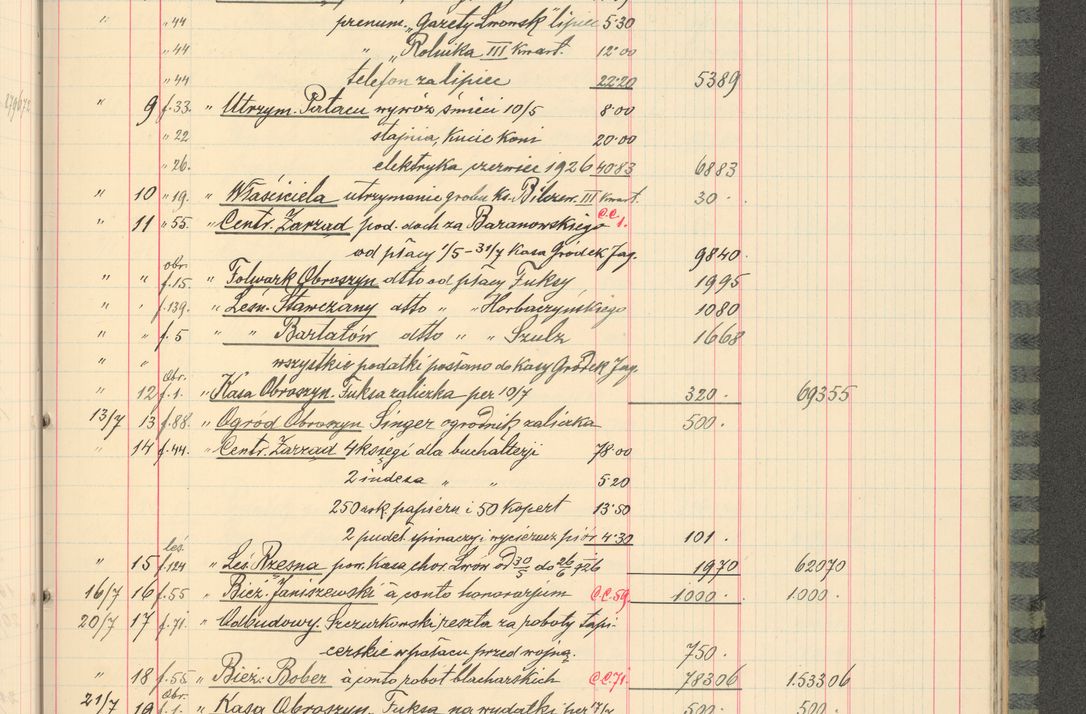 " „44 prenum. „Gazety Lwowsk" lipiec 5·30
„44 „ „Rolnika III kwart. 12·00
„44 telefon za lipiec 22·20 5389
" 9 f.33. " Utrzym. Pałacu wywóz śmieci 10/5 8·00
„22 stajnia, kucie koni 20·00
„26. elektryka czerwiec 1926 40·83 6883
" 10 „19. " Właściciela utrzymanie grobu ks. Bilczew. III kwart. 30 ·
" 11 „55. " Centr. Zarząd pod. doch za Baranowskiego C.C. 1.
od płacy 1/5 – 31/7 Kasa Gródek Jag. 9840
" " obr. f.15 " Folwark Obroszyn dtto od płacy Fuksy 1995
" " f.139. " Leśn. Stawczany dtto " " Horbaczyńskiego 1080
" " f.5 " " Bartatów dtto " " Szulz 1668
" " wszystkie podatki posłano do Kasy Gródek Jag.
" 12 Obr. f.1. " Kasa Obroszyn. Fuksa zaliczka per 10/7 320 · 69355
13/7 13 f.88. " Ogród Obroszyn Singer ogrodnik zaliczka 500 ·
" 14 f.44. " Centr. Zarząd 4 księgi dla buchalterji 78·00
2 indexa " " 5·20
250 ark. papieru i 50 kopert 13·50
2 pudeł. spinaczy i wycieracz piór 4·30 101 ·
" 15 leś. f.124 " Leś. Rzęsna pow. Kasa chor. Lwów od 30/5 do 26/6 926 1970 62070
16/7 16 f.55 " Bież. Janiszewski à conto honorarjum C.C.59. 1000 · 1.000 ·
20/7 17 f.71. " Odbudowy. Szczurkowski, reszta za roboty tapi-
cerskie w pałacu przed wojną. 750 ·
" 18 f.55 " Bież. Bober à conto robót blacharskich C.C.71. 78306 1.53306
21/7 19 Obr. f.1. " Kasa Obroszyn. Fuksa na wydatki per 17/7 500 · 500 ·